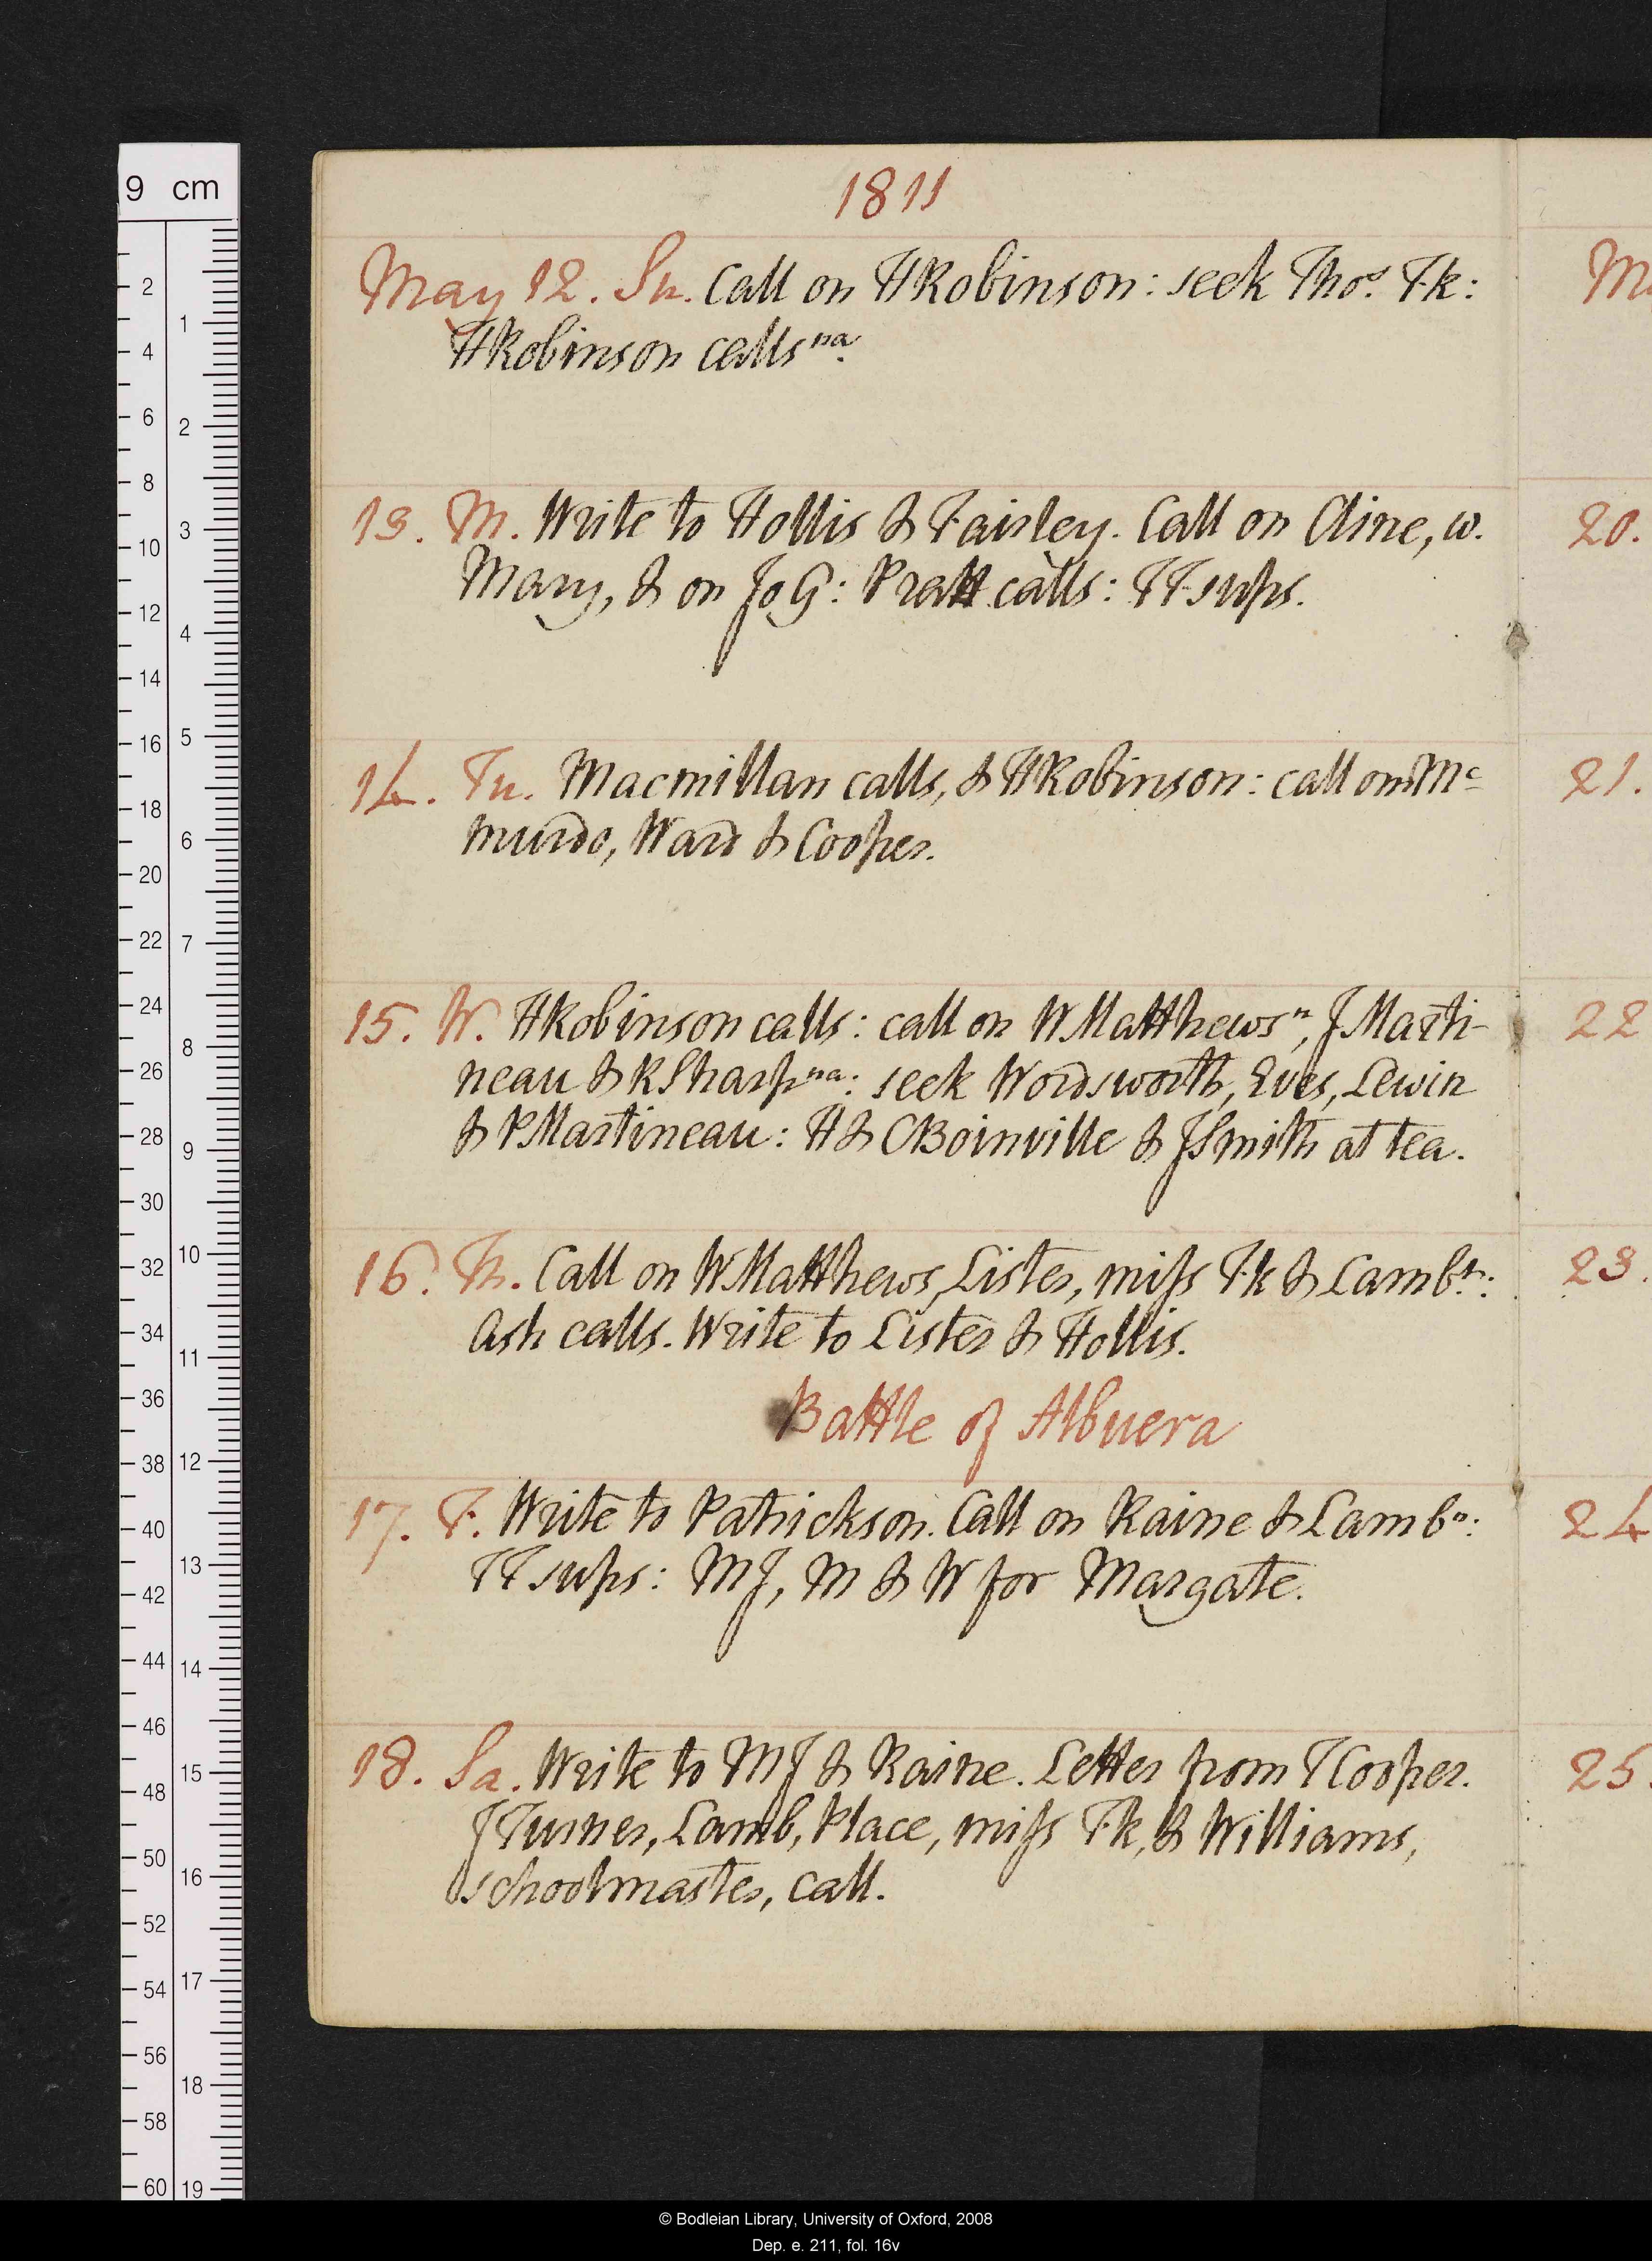 1811
May 12. Su. Call on HRobinson: seek Thos. Fk:
HRobinson calls na.
13. M. Write to Hollis & Fairley. Call on Cline, w.
Mary, & on Jo G: Pratt calls: TT sups.
14. Tu. Macmillan calls, & HRobinson: call on Mc
murdo, Ward & Cooper.
15. W. HRobinson calls: call on WMatthews n, JMarti-
neau & RSharp na: seek Wordsworth, Eves, Lewin
& PMartineau: H & CBoinville & JSmith at tea.
16. Th. Call on WMatthews, Lister, miss Fk & Lamb n:
Ash calls. Write to Lister & Hollis.
Battle of Albuera
17. F. Write to Patrickson. Call on Raine & Lamb n:
TT sups: MJ, M & W for Margate.
18. Sa. Write to MJ & Raine. Letter from TCooper.
JTurner, Lamb, Place, miss Fk, & Williams,
schoolmaster, call.
M
20.
21.
22
23.
24
25.
9 cm
2
4
6
8
10
12
14
16
18
20
22
24
26
28
30
32
34
36
38
40
42
44
46
48
50
52
54
56
58
60
1
2
3
4
5
6
7
8
9
10
11
12
13
14
15
16
17
18
19
© Bodleian Library, University of Oxford, 2008
Dep. e. 211, fol. 16v